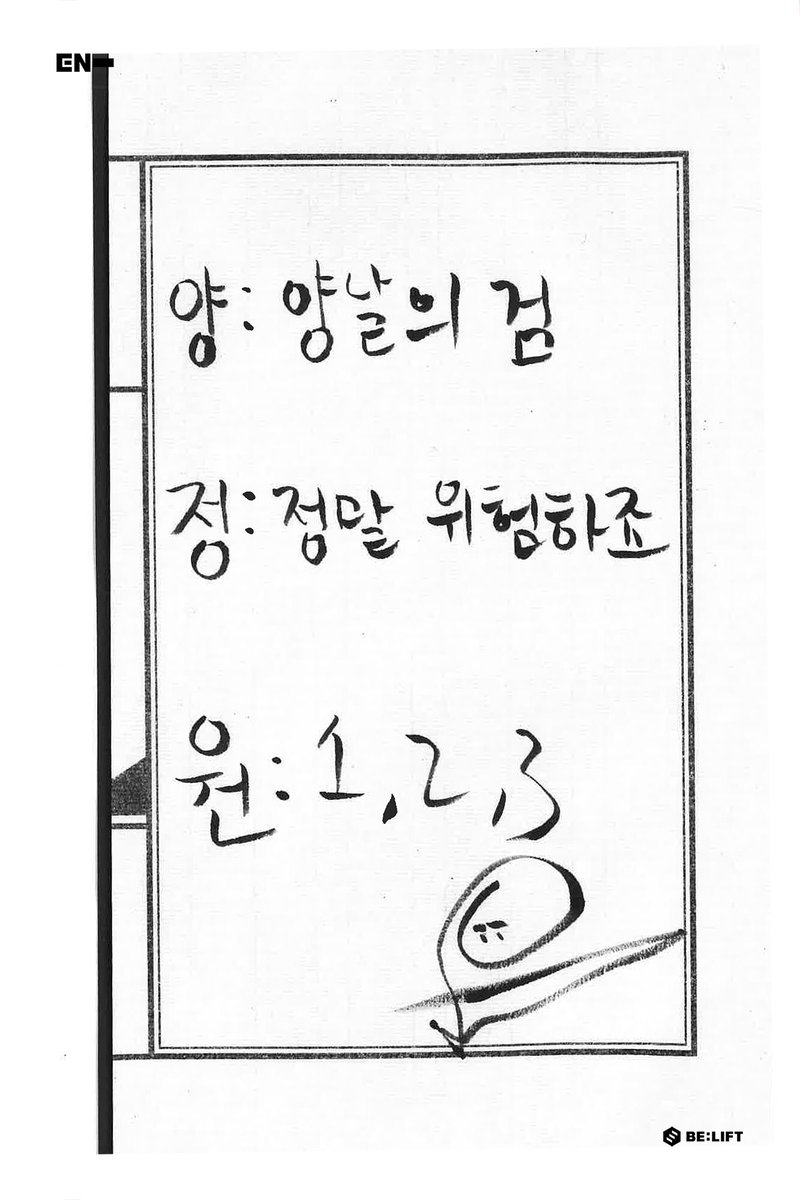 EN-
양: 양날의 검
정: 정말 위험하죠
원: 1, 2, 3
BE:LIFT